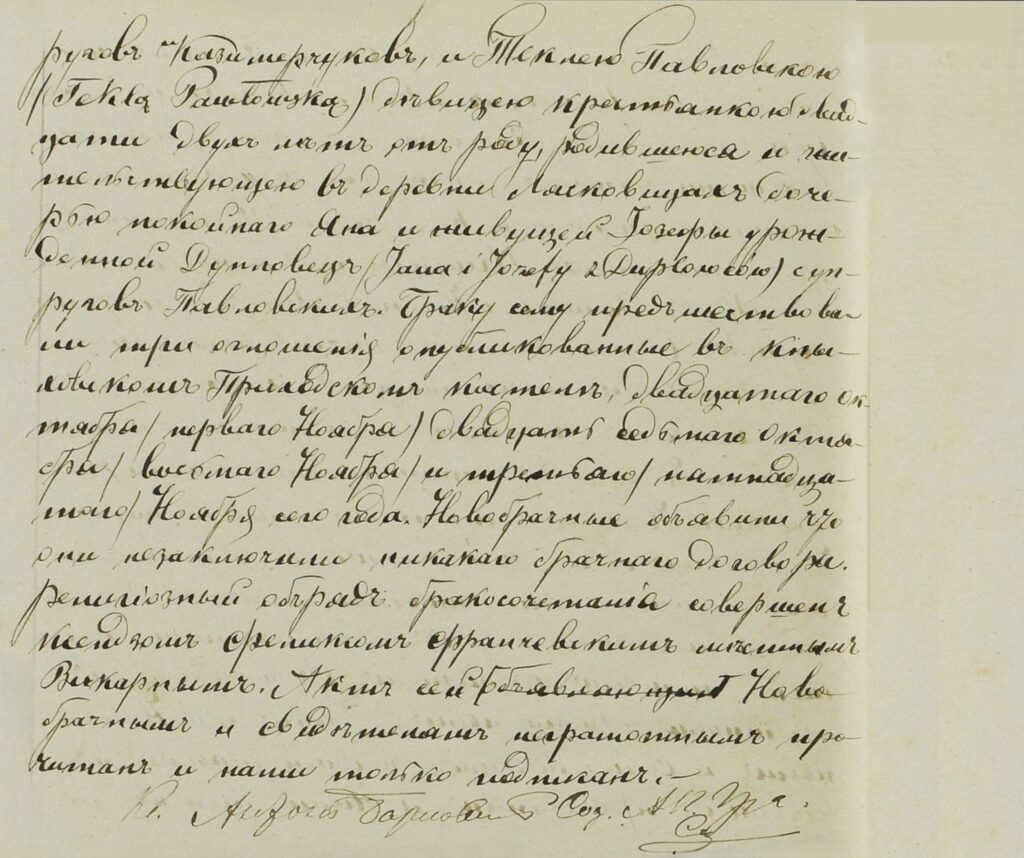 руговъ Казимерчуковъ, и Теклею Павловскою
(Tekla Pawłowska) дѣвицею крестьянкою двад-
цати двухъ лѣтъ отъ роду, родившеюся и жи-
тельствующею въ деревни Лясковицахъ доче-
рью покойнаго Яна и живущей Іозефы урож-
денной (Jana i Józefy z) суп-
руговъ Павловскихъ. Браку сему предшествова-
ли три оглошенія опубликованные въ Кны-
Приходскомъ костелѣ, двадцатаго Ок-
тября / перваго Ноября / двадцать седьмаго Октя-
бря / восьмаго Ноября / и третьяго / пятнадца-
таго / Ноября сего года. Новобрачные объявили что
они незаключили никакаго брачнаго договора.
Религіозный обрядъ бракосочетанія совершенъ
Ксендзомъ Феликсомъ мѣстнымъ
Викарнымъ. Актъ сей объявляющимъ Ново-
брачнымъ и свидѣтелямъ неграмотнымъ про-
читанъ и нами только подписанъ.-